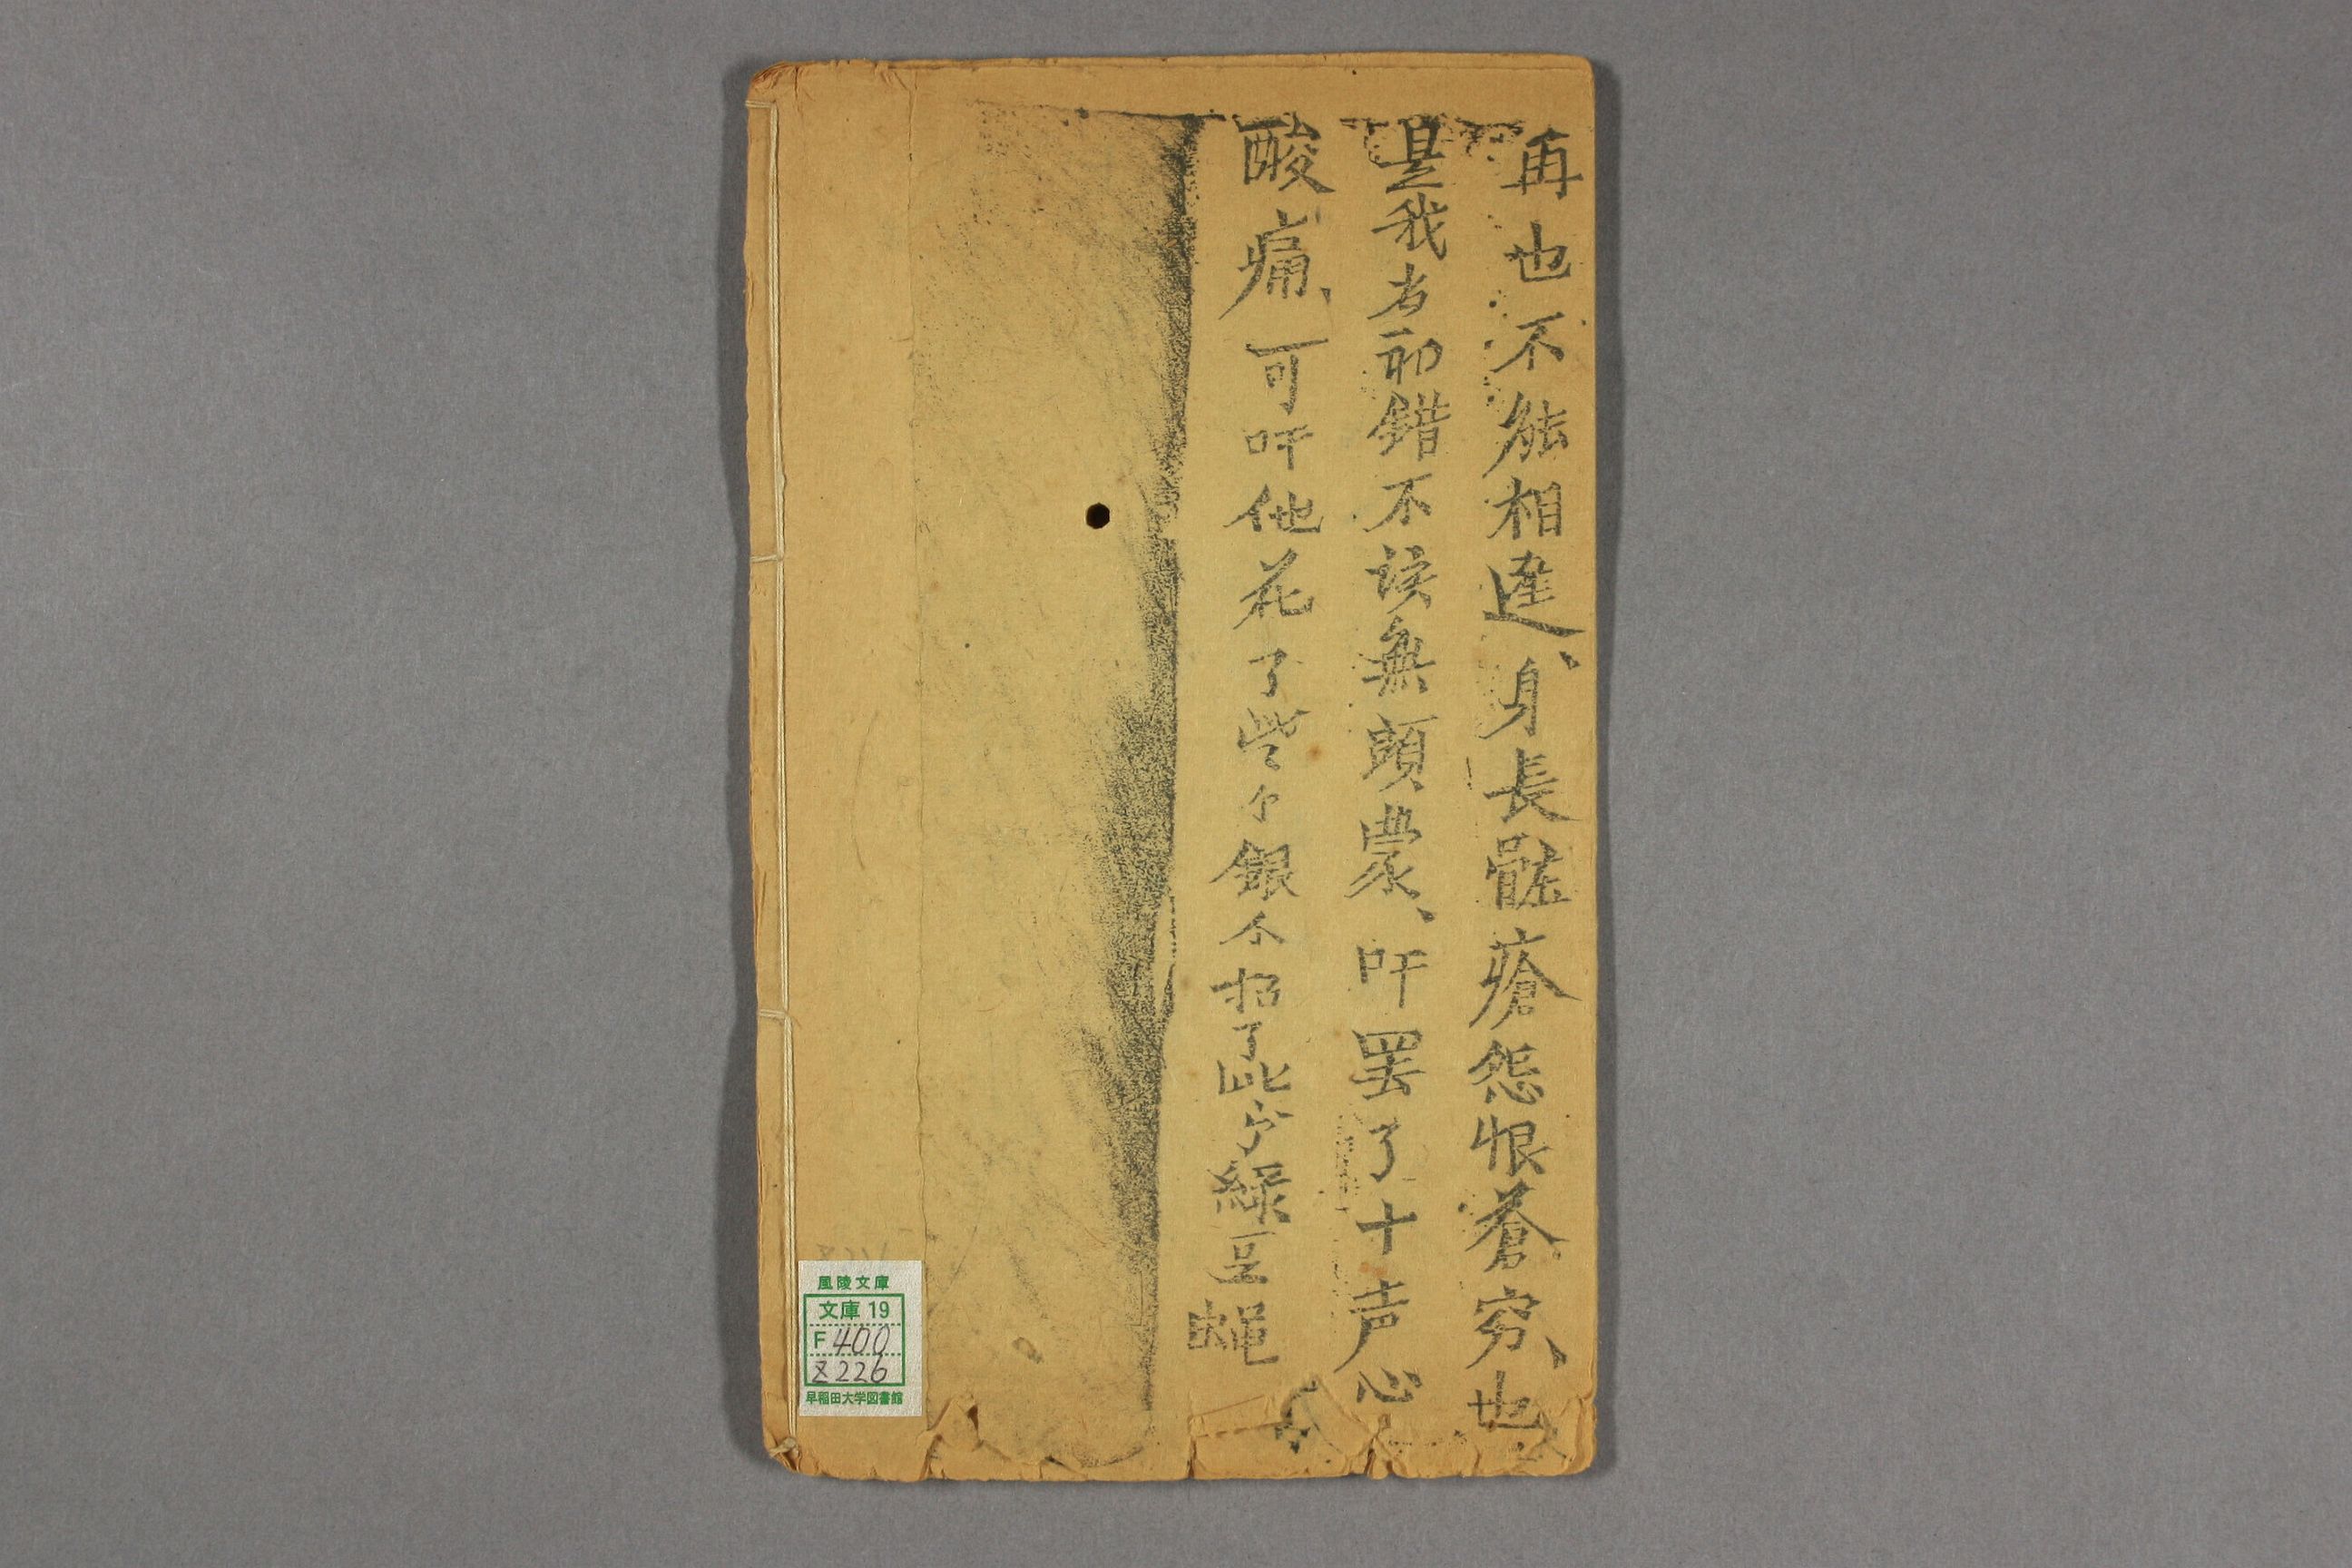 再也不能相逢、身長髒瘡怨恨蒼穷、也
是我当初錯不该無頭蒙、吁罢了十声心
酸痛、可吁他花了些个銀不招了此个綠豆蝇
風陵文庫
文庫 19
F 400
Z226
早稲田大学図書館